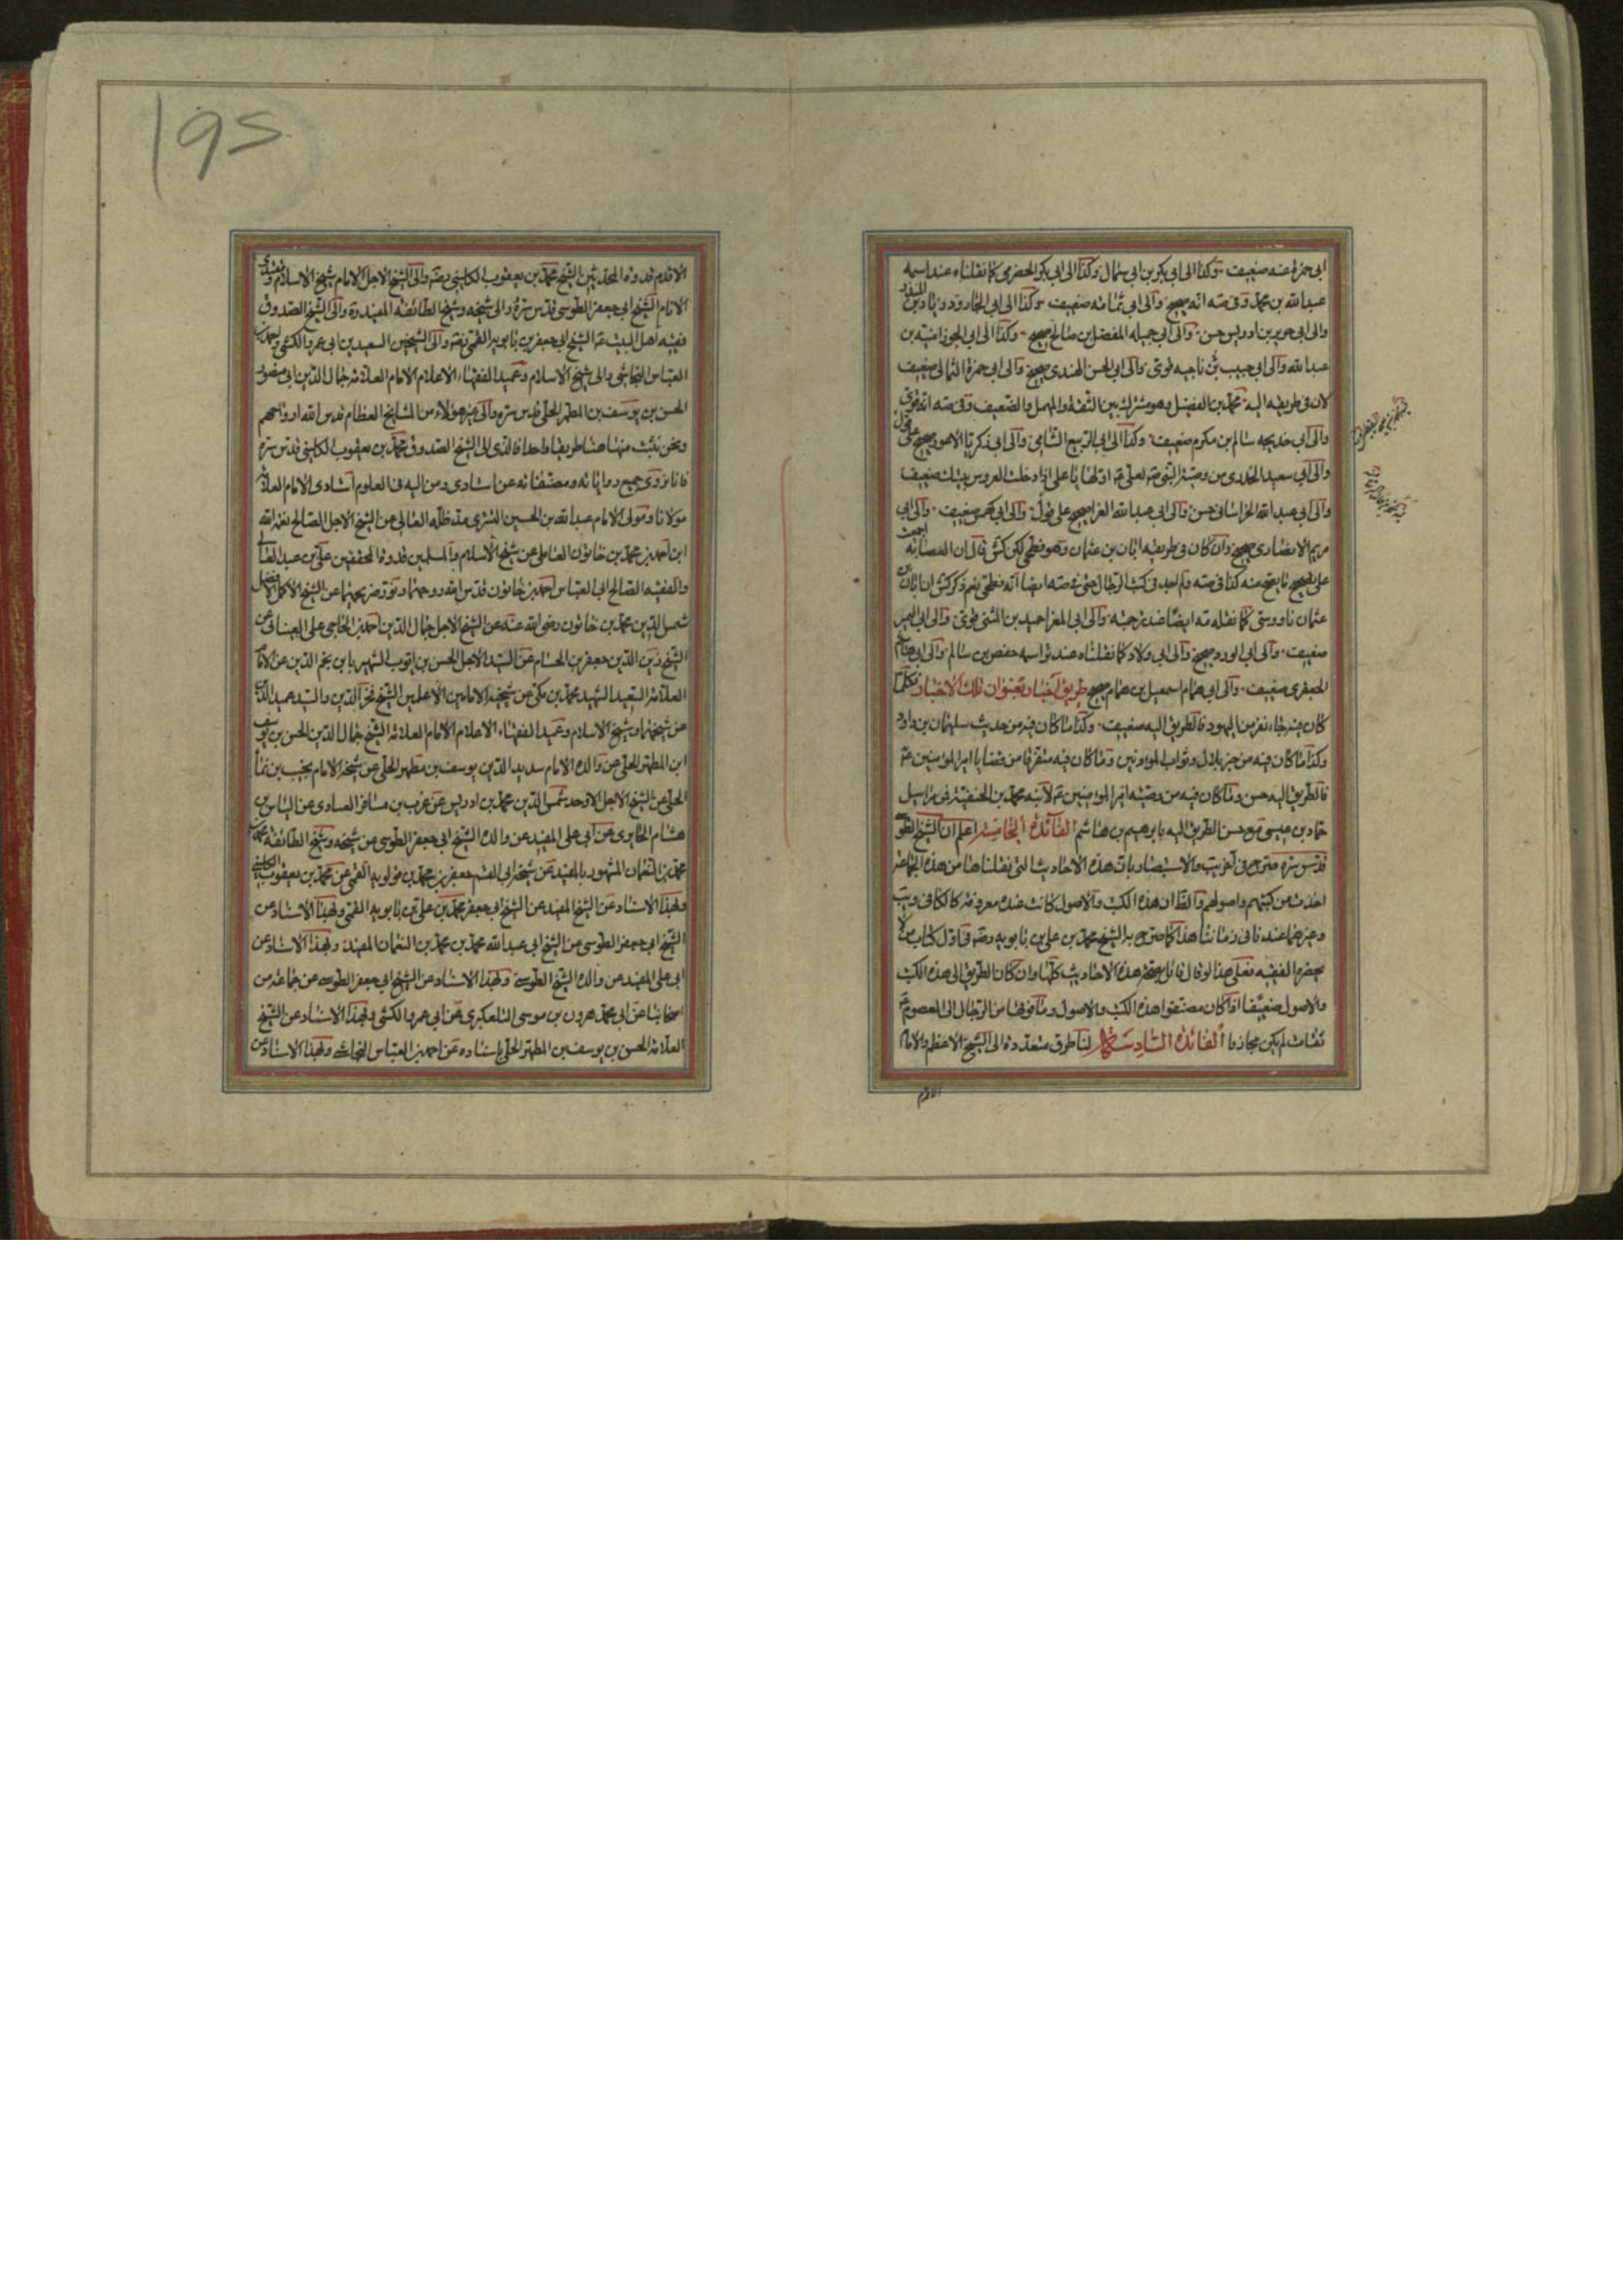 ابى حمزة عنه ضعيف وكذا الى ابى بكر بن ابى سمال وكذا الى ابى بكر الحضرمى كما نقلناه عند اسمه
عبد الله بن محمد وفى صه انه صحيح والى ابى ثمامه ضعيف وكذا الى ابى الجارود زياد بن المنذر
والى ابى جرير بن ادريس حسن والى ابى جميله المفضل بن صالح صحيح وكذا الى ابى الجوزا منبه بن
عبد الله والى ابى حبيب بن ناجيه قوى والى ابى الحسن الهندى صحيح والى ابى حمزة الثمالى ضعيف
لان فى طريقه اليه محمد بن الفضيل وهو مشترك بين الثقة والمهمل والضعيف وفى صه انه قوى
والى ابى خديجه سالم بن مكرم ضعيف وكذا الى ابى الربيع الشامى والى ابى زكريا الاعور صحيح على قول
والى ابى سعيد الخدرى من وصية النبى صه لعلى ع اولها يا على اذا دخلت العروس بيتك ضعيف
والى ابى عبد الله الخراسانى حسن والى ابى عبد الله الفرا صحيح على قول والى ابى كهمس ضعيف والى ابى
مريم الانصارى صحيح وان كان فى طريقه ابان بن عثمان وهو فطحى لكن كش قال ان العصابة اجمعت
على تصحيح ما يصح عنه كذا فى صه ولم اجد فى كتب الرجال حتى فى صه ايضا انه فطحى نعم ذكر كش ان ابان بن
عثمان ناووسى كما نقله صه ايضا عند ترجمته والى ابى المغرا حميد بن المثنى قوى والى ابى النمير
ضعيف والى ابى الورد صحيح والى ابى ولاد كما نقلناه عند اسمه حفص بن سالم والى ابى هاشم
الجعفرى ضعيف والى ابى همام اسمعيل بن همام صحيح طريق اخبار بعنوان تلك الاخبار فكلما
كان فيه جاء نفر من اليهود فالطريق اليه ضعيف وكذا ما كان فيه من حديث سليمان بن داود
وكذا ما كان فيه من خبر بلال وثواب المؤذنين وما كان فيه متفرقا من قضايا امير المؤمنين ع
فالطريق اليه حسن وما كان فيه من وصية امير المؤمنين ع لابنه محمد بن الحنفية فى مراسيل
حماد بن عيسى مع حسن الطريق اليه بابرهيم بن هاشم الفائدة الخامسة اعلم ان الشيخ الطوسى
قدس سره صرح فى اخر يب والاستبصار بان هذه الاحاديث التى نقلناها من هذه الجماعة
اخذت من كتبهم واصولهم والظ ان هذه الكتب والاصول كانت عنده معروفة كالكافى ويب
وغيرهما عندنا فى زماننا هذا كما صرح به الشيخ محمد بن على بن بابويه رضه فى اول كتاب من لا
يحضره الفقيه فعلى هذا لو قال قائل بصحة هذه الاحاديث كلها وان كان الطريق الى هذه الكتب
والاصول ضعيفا اذا كان مصنفوا هذه الكتب والاصول وما فوقها من الرجال الى المعصوم ع
ثقات لم يكن مجازفا الفائدة السادسة لنا طرق متعددة الى الشيخ الاعظم والامام
الاقدم
الاقدم قدوة المحدثين الشيخ محمد بن يعقوب الكلينى رضه والى الشيخ الاجل الامام شيخ الاسلام ومقتدى
الانام الشيخ ابى جعفر الطوسى قدس سره والى شيخه وشيخ الطائفة المفيد ره والى الشيخ الصدوق
فقيه اهل البيت ع الشيخ ابى جعفر بن بابويه القمى رضه والى الشيخين السعيدين ابى عمرو الكشى واحمد بن
العباس النجاشى والى شيخ الاسلام وعميد الفقهاء الاعلام الامام العلامة جمال الدين ابى منصور
الحسن بن يوسف بن المطهر الحلى قدس سره والى غير هؤلاء من المشايخ العظام قدس الله ارواحهم
ونحن نثبت منها هنا طريقا واحدا فالذى الى الشيخ الصدوق محمد بن يعقوب الكلينى قدس سره
فانا نروى جميع رواياته ومصنفاته عن استادى ومن اليه فى العلوم استنادى الامام العلامة
مولانا ومولى الانام عبد الله بن الحسين التسترى مد ظله العالى عن الشيخ الاجل الصالح نعمة الله
ابن احمد بن محمد بن خاتون العاملى عن شيخ الاسلام والمسلمين قدوة المحققين على بن عبد العالى
والفقيه الصالح ابى العباس احمد بن خاتون قدس الله روحهما ونور ضريحهما عن الشيخ الاكمل الافضل
شمس الدين محمد بن خاتون رضى الله عنه عن الشيخ الاجل جمال الدين احمد بن الحاجى على العيناثى عن
الشيخ زين الدين جعفر بن الحسام عن السيد الاجل الحسن بن ايوب الشهير بابن نجم الدين عن الامام
العلامة السعيد الشهيد محمد بن مكى عن شيخيه الامامين الاعلمين الشيخ فخر الدين والسيد عميد الدين
عن شيخهما وشيخ الاسلام وعميد الفقهاء الاعلام الامام العلامة الشيخ جمال الدين الحسن بن يوسف
ابن المطهر الحلى عن والده الامام سديد الدين يوسف بن مطهر الحلى عن شيخه الامام نجيب بن نما
الحلى عن الشيخ الاجل الاوحد شمس الدين محمد بن ادريس عن عربى بن مسافر العبادى عن الياس بن
هشام الحايرى عن ابى على المفيد عن والده الشيخ ابى جعفر الطوسى عن شيخه وشيخ الطائفة محمد بن
محمد بن النعمان المشهور بالمفيد عن شيخه ابى القسم جعفر بن محمد بن قولويه القمى عن محمد بن يعقوب الكلينى
وبهذا الاسناد عن الشيخ المفيد عن الشيخ ابى جعفر محمد بن على بن بابويه القمى وبهذا الاسناد عن
الشيخ ابى جعفر الطوسى عن الشيخ ابى عبد الله محمد بن محمد بن النعمان المفيد وبهذا الاسناد عن
ابى على المفيد عن والده الشيخ الطوسى وبهذا الاسناد عن الشيخ ابى جعفر الطوسى عن جماعة من
اصحابنا عن ابى محمد هرون بن موسى التلعكبرى عن ابى عمرو الكشى وبهذا الاسناد عن الشيخ
العلامة الحسن بن يوسف بن المطهر الحلى باسناده عن احمد بن العباس النجاشى وبهذا الاسناد عن